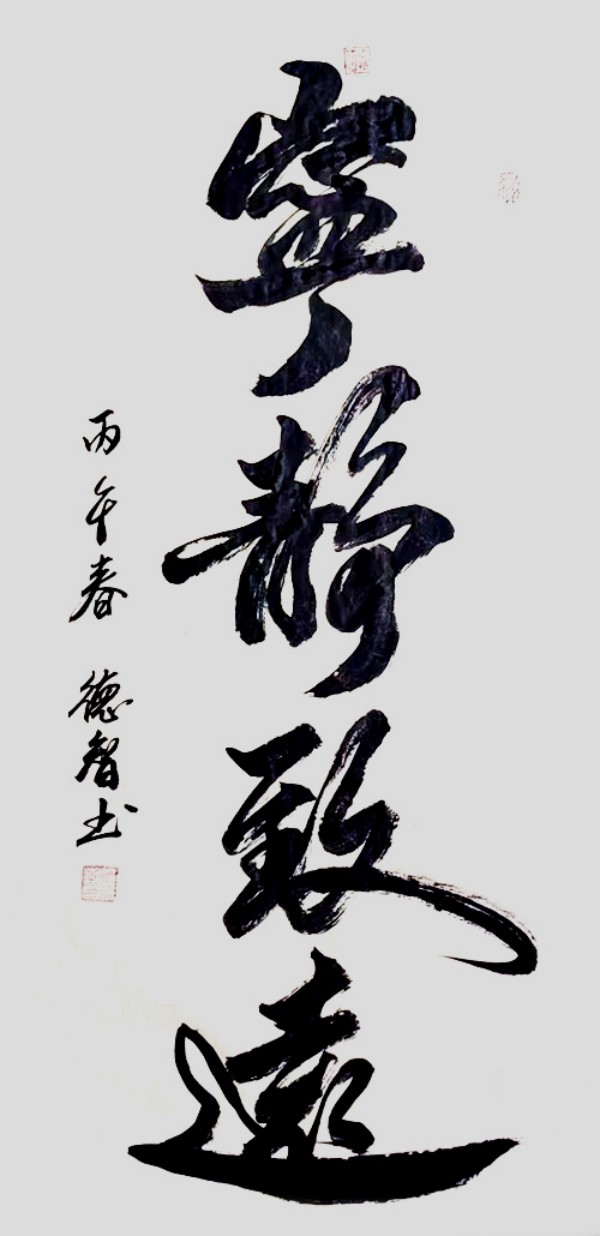 寧靜致遠
丙午春 德智书